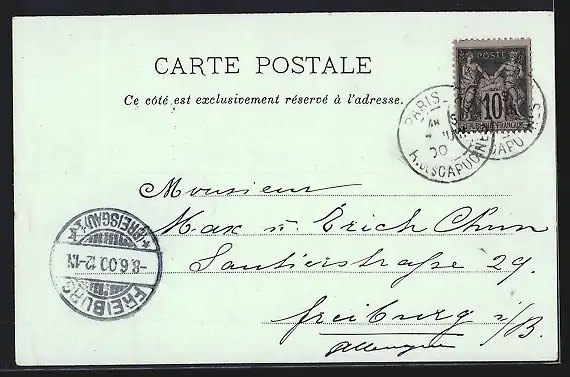 CARTE POSTALE
Ce côté est exclusivement réservé à l'adresse.
POSTE
10
REPUBLIQUE FRANÇAISE
PARIS
R. DES CAPUCINES
00
Monsieur
Max u. Erich Chun
Santierstraße 29.
Freiburg i/B.
Allemagne
FREIBURG
-8.6.00.12-1N
* (BREISGAU) 1. k